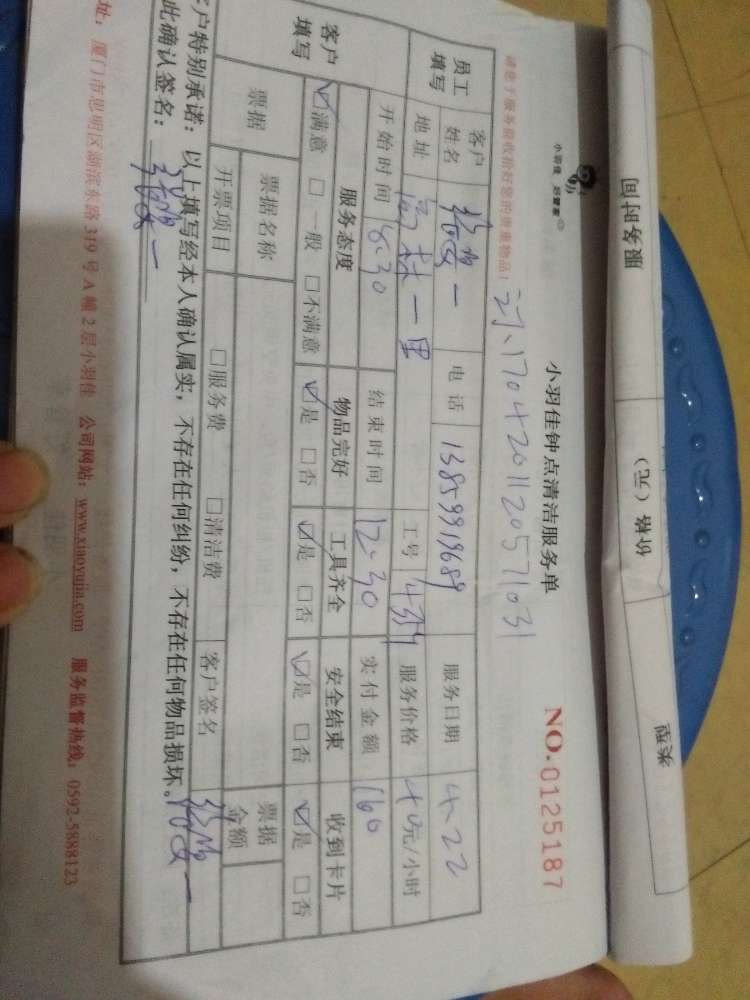 服务时间 价格（元） 类型
小羽佳 好管家
小羽佳钟点清洁服务单 NO.0125187
请您于服务前收拾好您的贵重物品！ 1704201120571031
员工填写 客户姓名 电话 13859919689 服务日期 4.22
地址 高林一里 工号 服务价格 40元/小时
开始时间 8:30 结束时间 12:30 实付金额 160
客户填写 服务态度 物品完好 工具齐全 安全结束 收到卡片
☑满意 □一般 □不满意 ☑是 □否 ☑是 □否 ☑是 □否 ☑是 □否
票据 票据名称 票据金额
开票项目 □服务费 □清洁费 客户签名
客户特别承诺：以上填写经本人确认属实，不存在任何纠纷，不存在任何物品损坏。
此确认签名：
址：厦门市思明区湖滨东路 319 号 A 幢 2 层小羽佳 公司网站：www.xiaoyujia.com 服务监督热线：0592-5888123